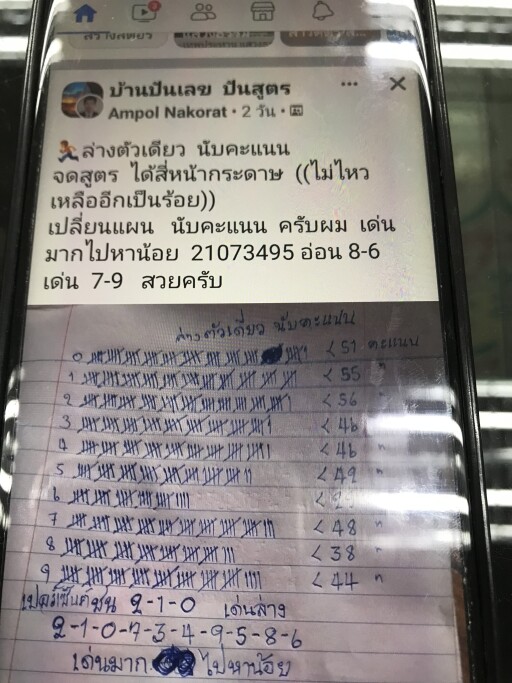 บ้านปันเลข ปันสูตร
Ampol Nakorat · 2 วัน ·
ล่างตัวเดียว นับคะแนน
จดสูตร ได้สี่หน้ากระดาษ ((ไม่ไหว
เหลืออีกเป็นร้อย))
เปลี่ยนแผน นับคะแนน ครับผม เด่น
มากไปหาน้อย 21073495 อ่อน 8-6
เด่น 7-9 สวยครับ
ล่างตัวเดี่ยว นับคะแนน
0 < 51 คะแนน
1 < 55 "
2 < 56 "
3 < 46 "
4 < 46 "
5 < 49 "
6 <
7 < 48 "
8 < 38 "
9 < 44 "
เปอร์เซ็นต์ชน 2-1-0 เด่นล่าง
2-1-0-7-3-4-9-5-8-6
เด่นมาก ไปหาน้อย